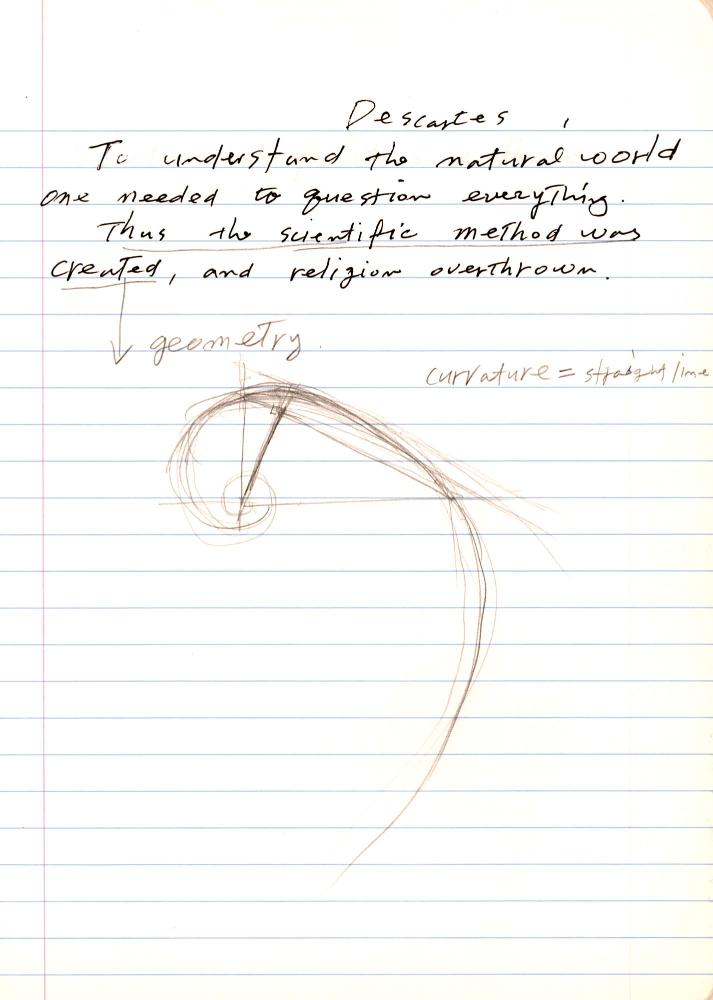 Descartes,
To understand the natural world
one needed to question everything.
Thus the scientific method was
created, and religion overthrown.
geometry.
curvature = straight line